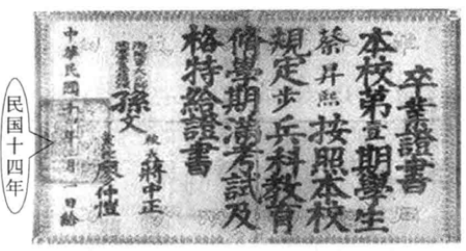 卒業證書
本校第壹期學生
蔡昇熙按照本校
規定步兵科教育
修學期滿考試及
格特給證書
孫文
校長蔣中正
廖仲愷
中華民國十四年 月一日給
民国十四年